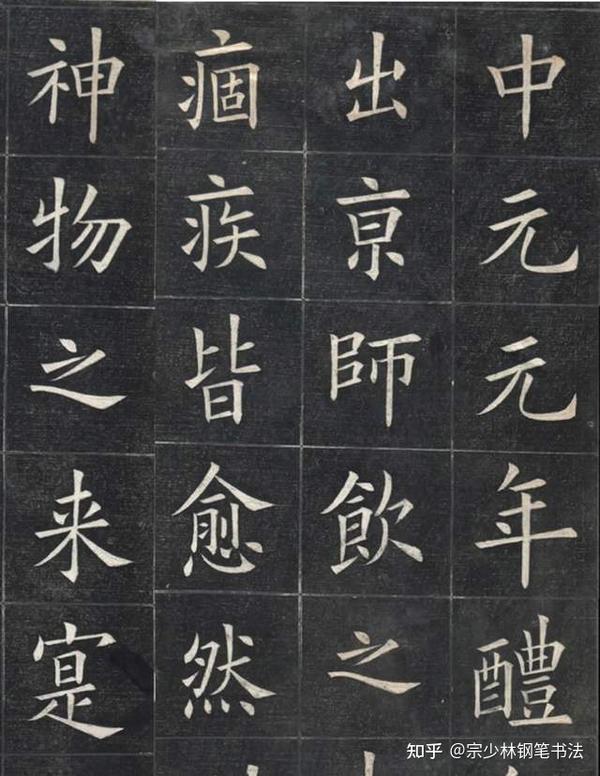 中元元年醴
出亰師飲之
痼疾皆愈然
神物之来寔
知乎 @宗少林钢笔书法